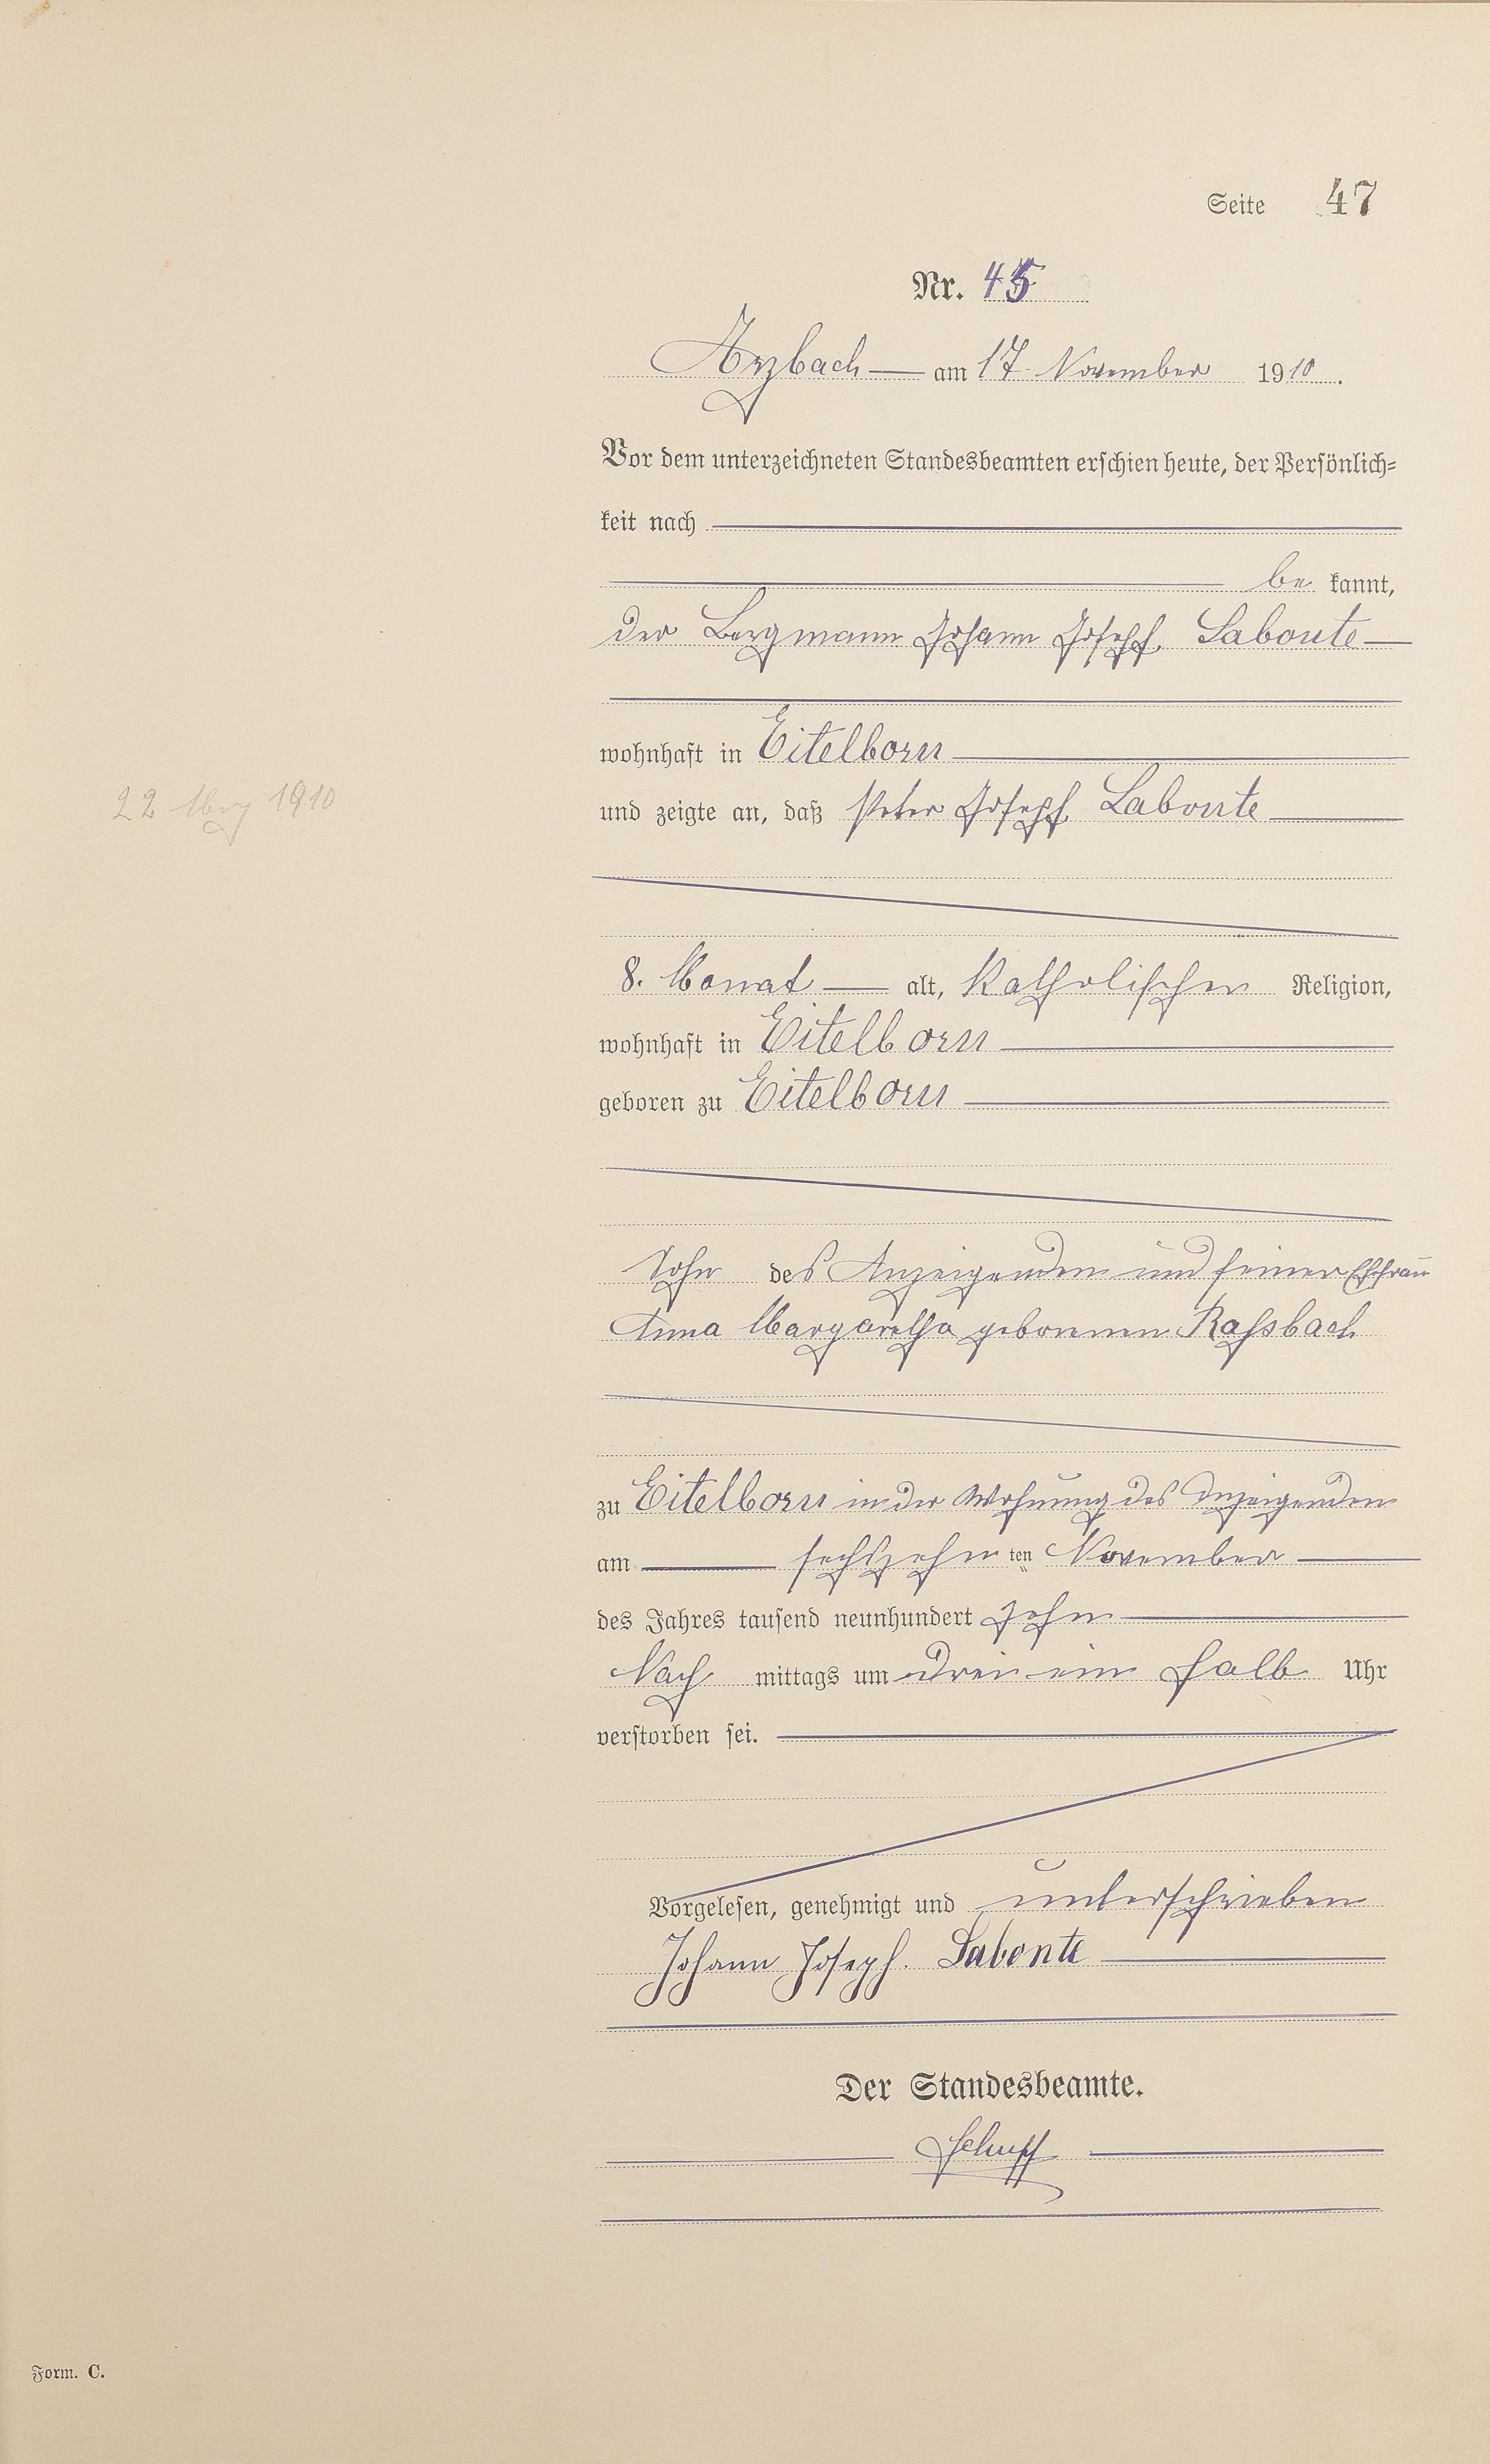 Seite 47
Nr. 45
Arzbach am 17. November 1910.
Vor dem unterzeichneten Standesbeamten erschien heute, der Persönlich=
keit nach
be kannt,
der Bergmann Johann Joseph Labonte
wohnhaft in Eitelborn
22 März 1910
und zeigte an, daß Peter Joseph Labonte
8. Monat alt, Katholischer Religion,
wohnhaft in Eitelborn
geboren zu Eitelborn
Sohn des Anzeigenden und seiner Ehefrau
Anna Margaretha geborenen Rassbach
zu Eitelborn in der Wohnung des Anzeigenden
am sechszehn ten November
des Jahres tausend neunhundert zehn
Nach mittags um drei ein halb Uhr
verstorben sei.
Vorgelesen, genehmigt und unterschrieben
Johann Joseph. Labonte
Der Standesbeamte.
Form. C.